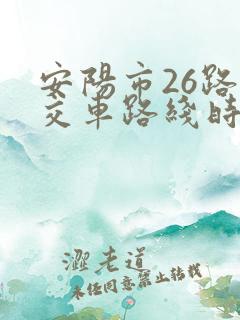 安陽市26路
交車路綫時
澀老道
未经同意禁止转载